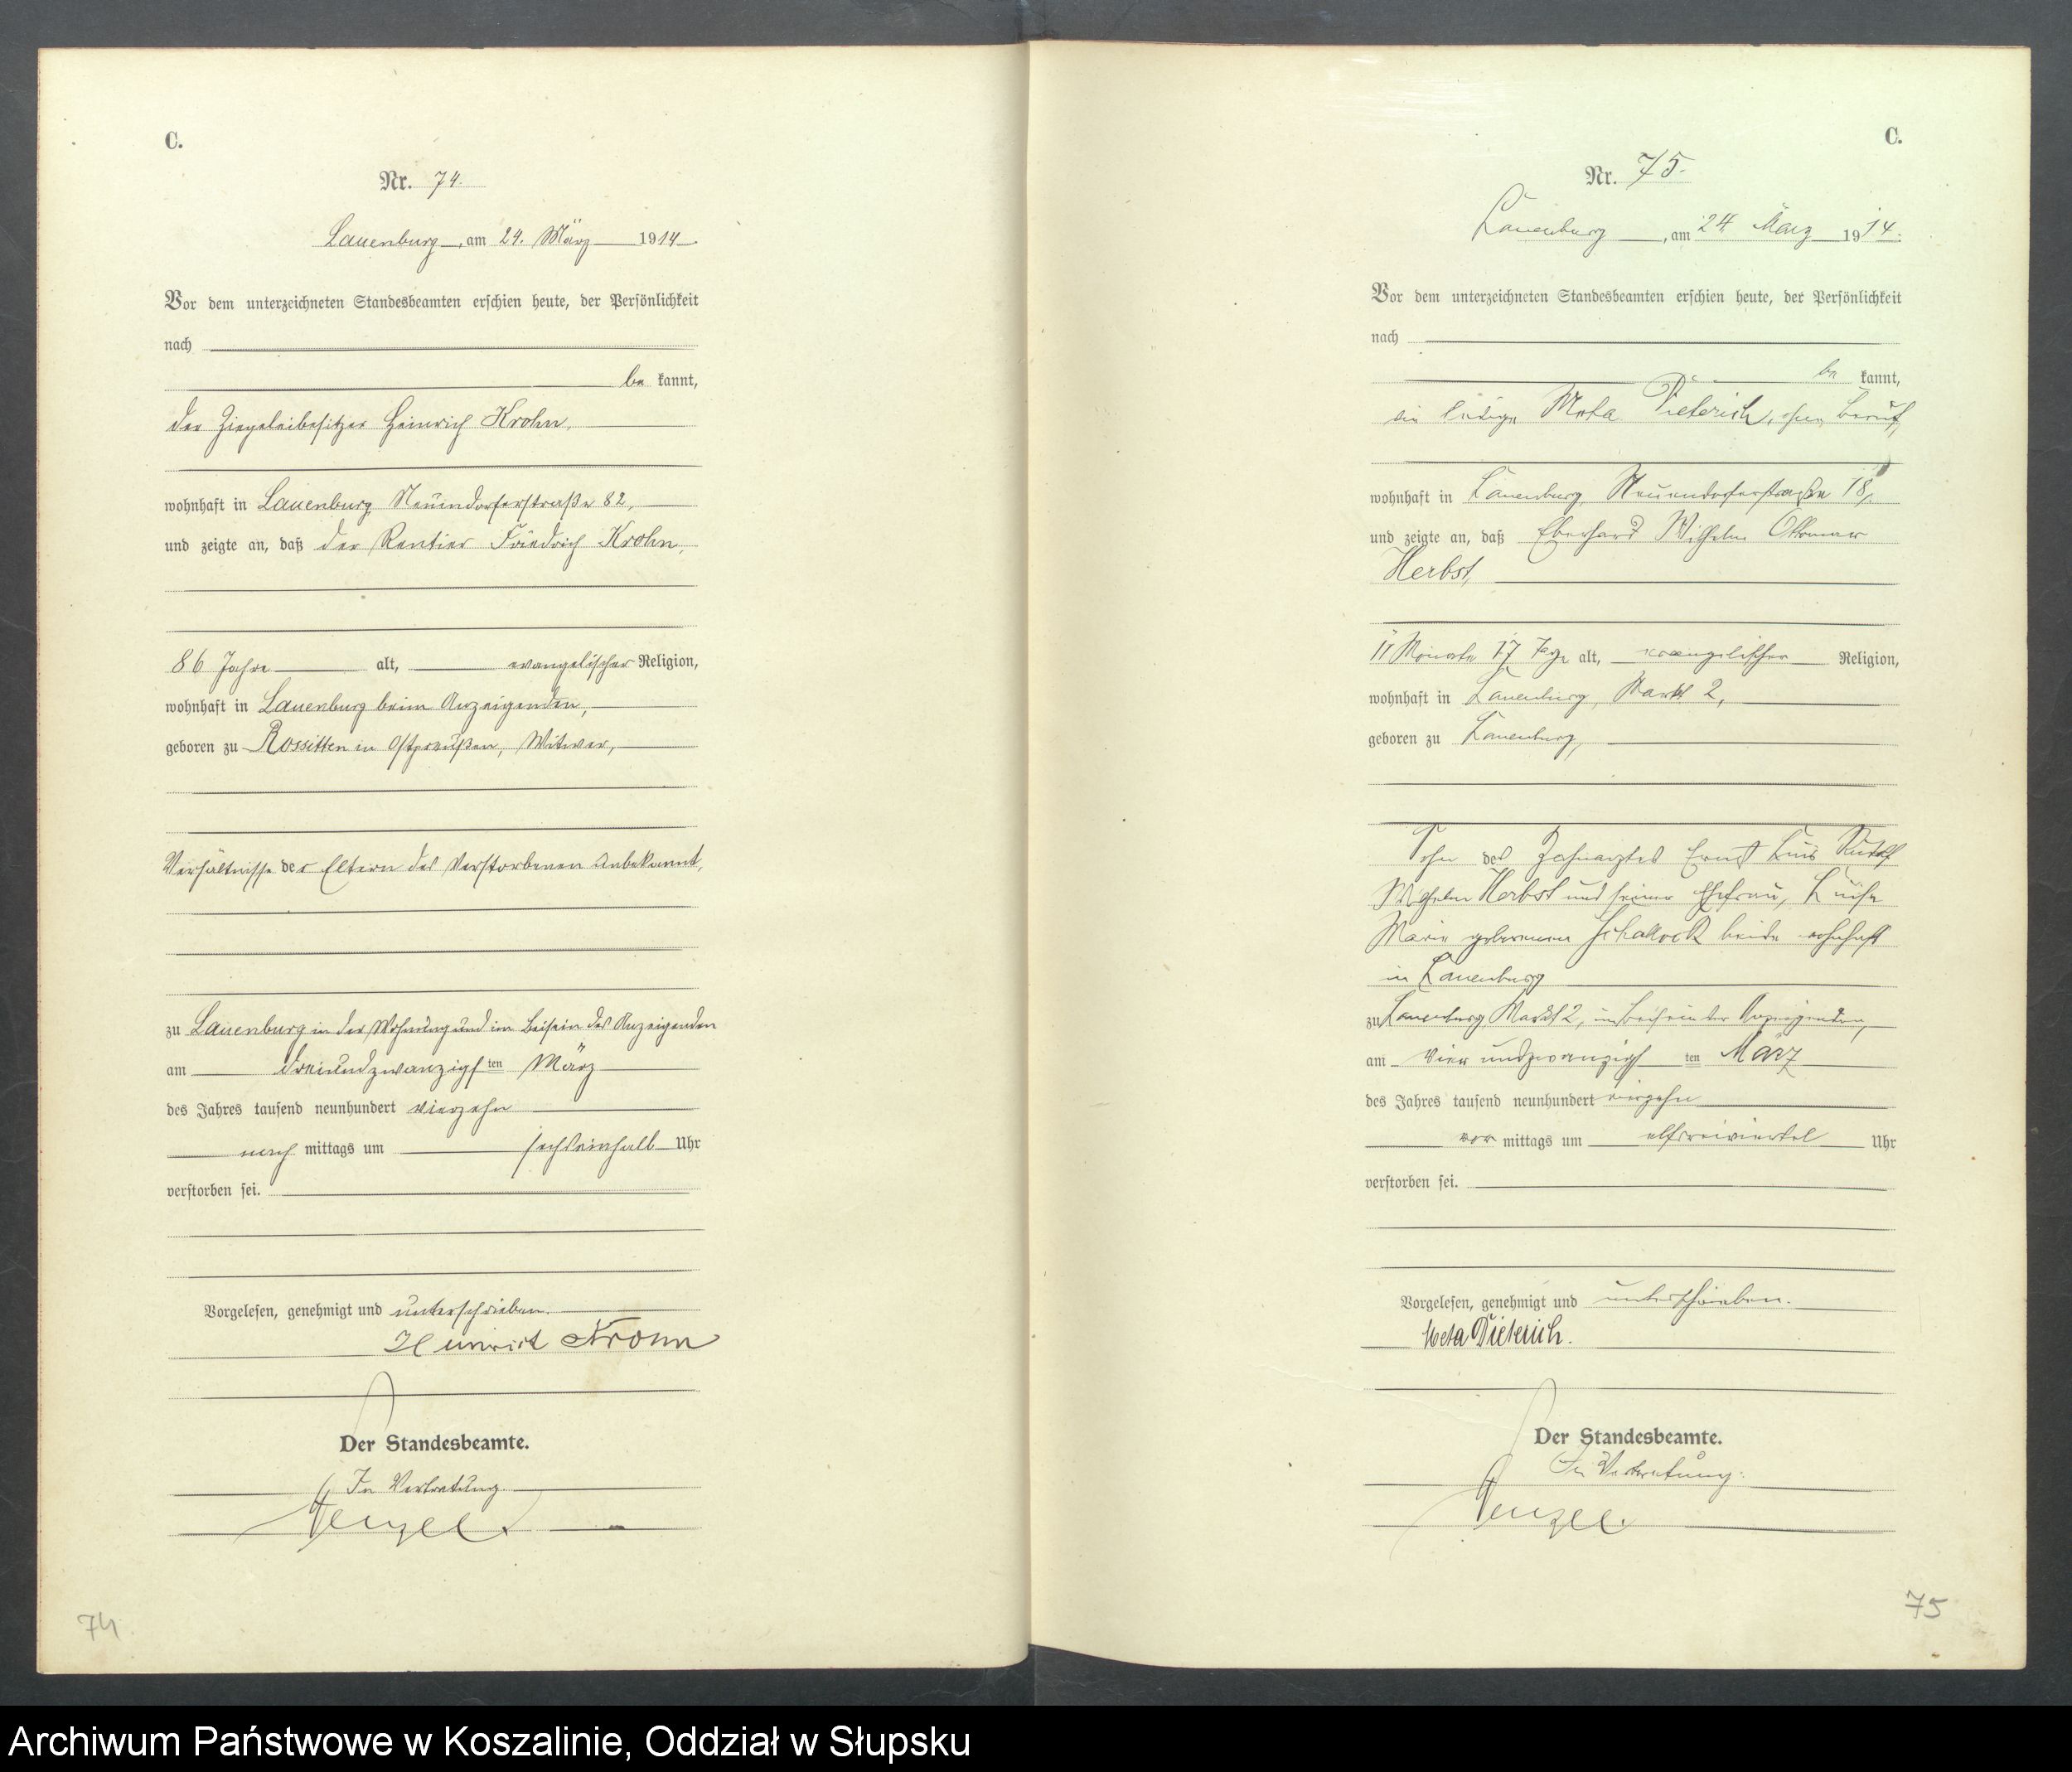 C.
Nr. 74.
Lauenburg, am 24. März 1914.
Vor dem unterzeichneten Standesbeamten erschien heute, der Persönlichkeit
nach
be kannt,
der Ziegeleibesitzer Heinrich Krohn,
wohnhaft in Lauenburg Neuendorferstraße 82,
und zeigte an, daß der Rentier Friedrich Krohn,
86 Jahre alt, evangelischer Religion,
wohnhaft in Lauenburg beim Anzeigenden,
geboren zu Rossitten in Ostpreußen, Witwer,
Verhältnisse der Eltern des Verstorbenen unbekannt,
zu Lauenburg in der Wohnung und im Beisein des Anzeigenden
am dreiundzwanzigsten März
des Jahres tausend neunhundert vierzehn
nach mittags um sechseinhalb Uhr
verstorben sei.
Vorgelesen, genehmigt und unterschrieben.
Heinrich Krohn
Der Standesbeamte.
In Vertretung
Wenzel.
74
C.
Nr. 75.
Lauenburg, am 24 März 1914.
Vor dem unterzeichneten Standesbeamten erschien heute, der Persönlichkeit
nach
be kannt,
die ledige Meta Dieterich, ohne Beruf,
wohnhaft in Lauenburg, Neuendorferstraße 18,
und zeigte an, daß Eberhard Wilhelm Ottomar
Herbst,
11 Monate 17 Tage alt, evangelischer Religion,
wohnhaft in Lauenburg, Markt 2,
geboren zu Lauenburg,
Sohn des Zahnarztes Ernst Rudolf
Wilhelm Herbst und seiner Ehefrau, Luise
Marie geborenen Schallock beide wohnhaft
in Lauenburg
zu Lauenburg Markt 2, im Beisein der Anzeigenden,
am vierundzwanzigsten März
des Jahres tausend neunhundert vierzehn
vor mittags um elfdreiviertel Uhr
verstorben sei.
Vorgelesen, genehmigt und unterschrieben.
Meta Dieterich.
Der Standesbeamte.
In Vertretung.
Wenzel.
75
Archiwum Państwowe w Koszalinie, Oddział w Słupsku